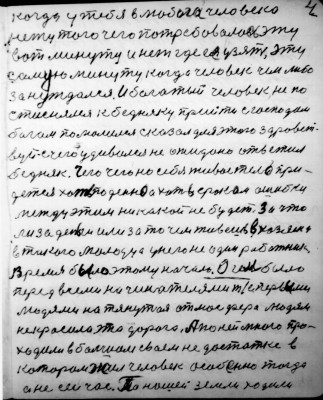 4
когда у тебя в любога человека
нету того чего потребовалось эту
вот минуту и негде взять, эту
самую минуту когда человек чем либо
зануждался. И богатый человек не по
стиснялся к бедняку притти с господам
богам помолился сказал для этого здравст-
вуй с чего удивился не ожидано ответил
бедняк. Чего чего на себя живаетево при-
детса хоть поденно а хоть сроком ошибки
между этим никакой не будет. За что
ли за деньги или за то чем живеш в хозяина
в такого молодца у него не один работник
время было этому начало. Огонь было
перед всеми начинателями первыми
людями натянутая отмосфера людям
некрасила эта дорога. Апоней много про-
ходили в большом своем не достатке в
котором жил человек особено тогда
а не сейчас. По нашей земли ходили